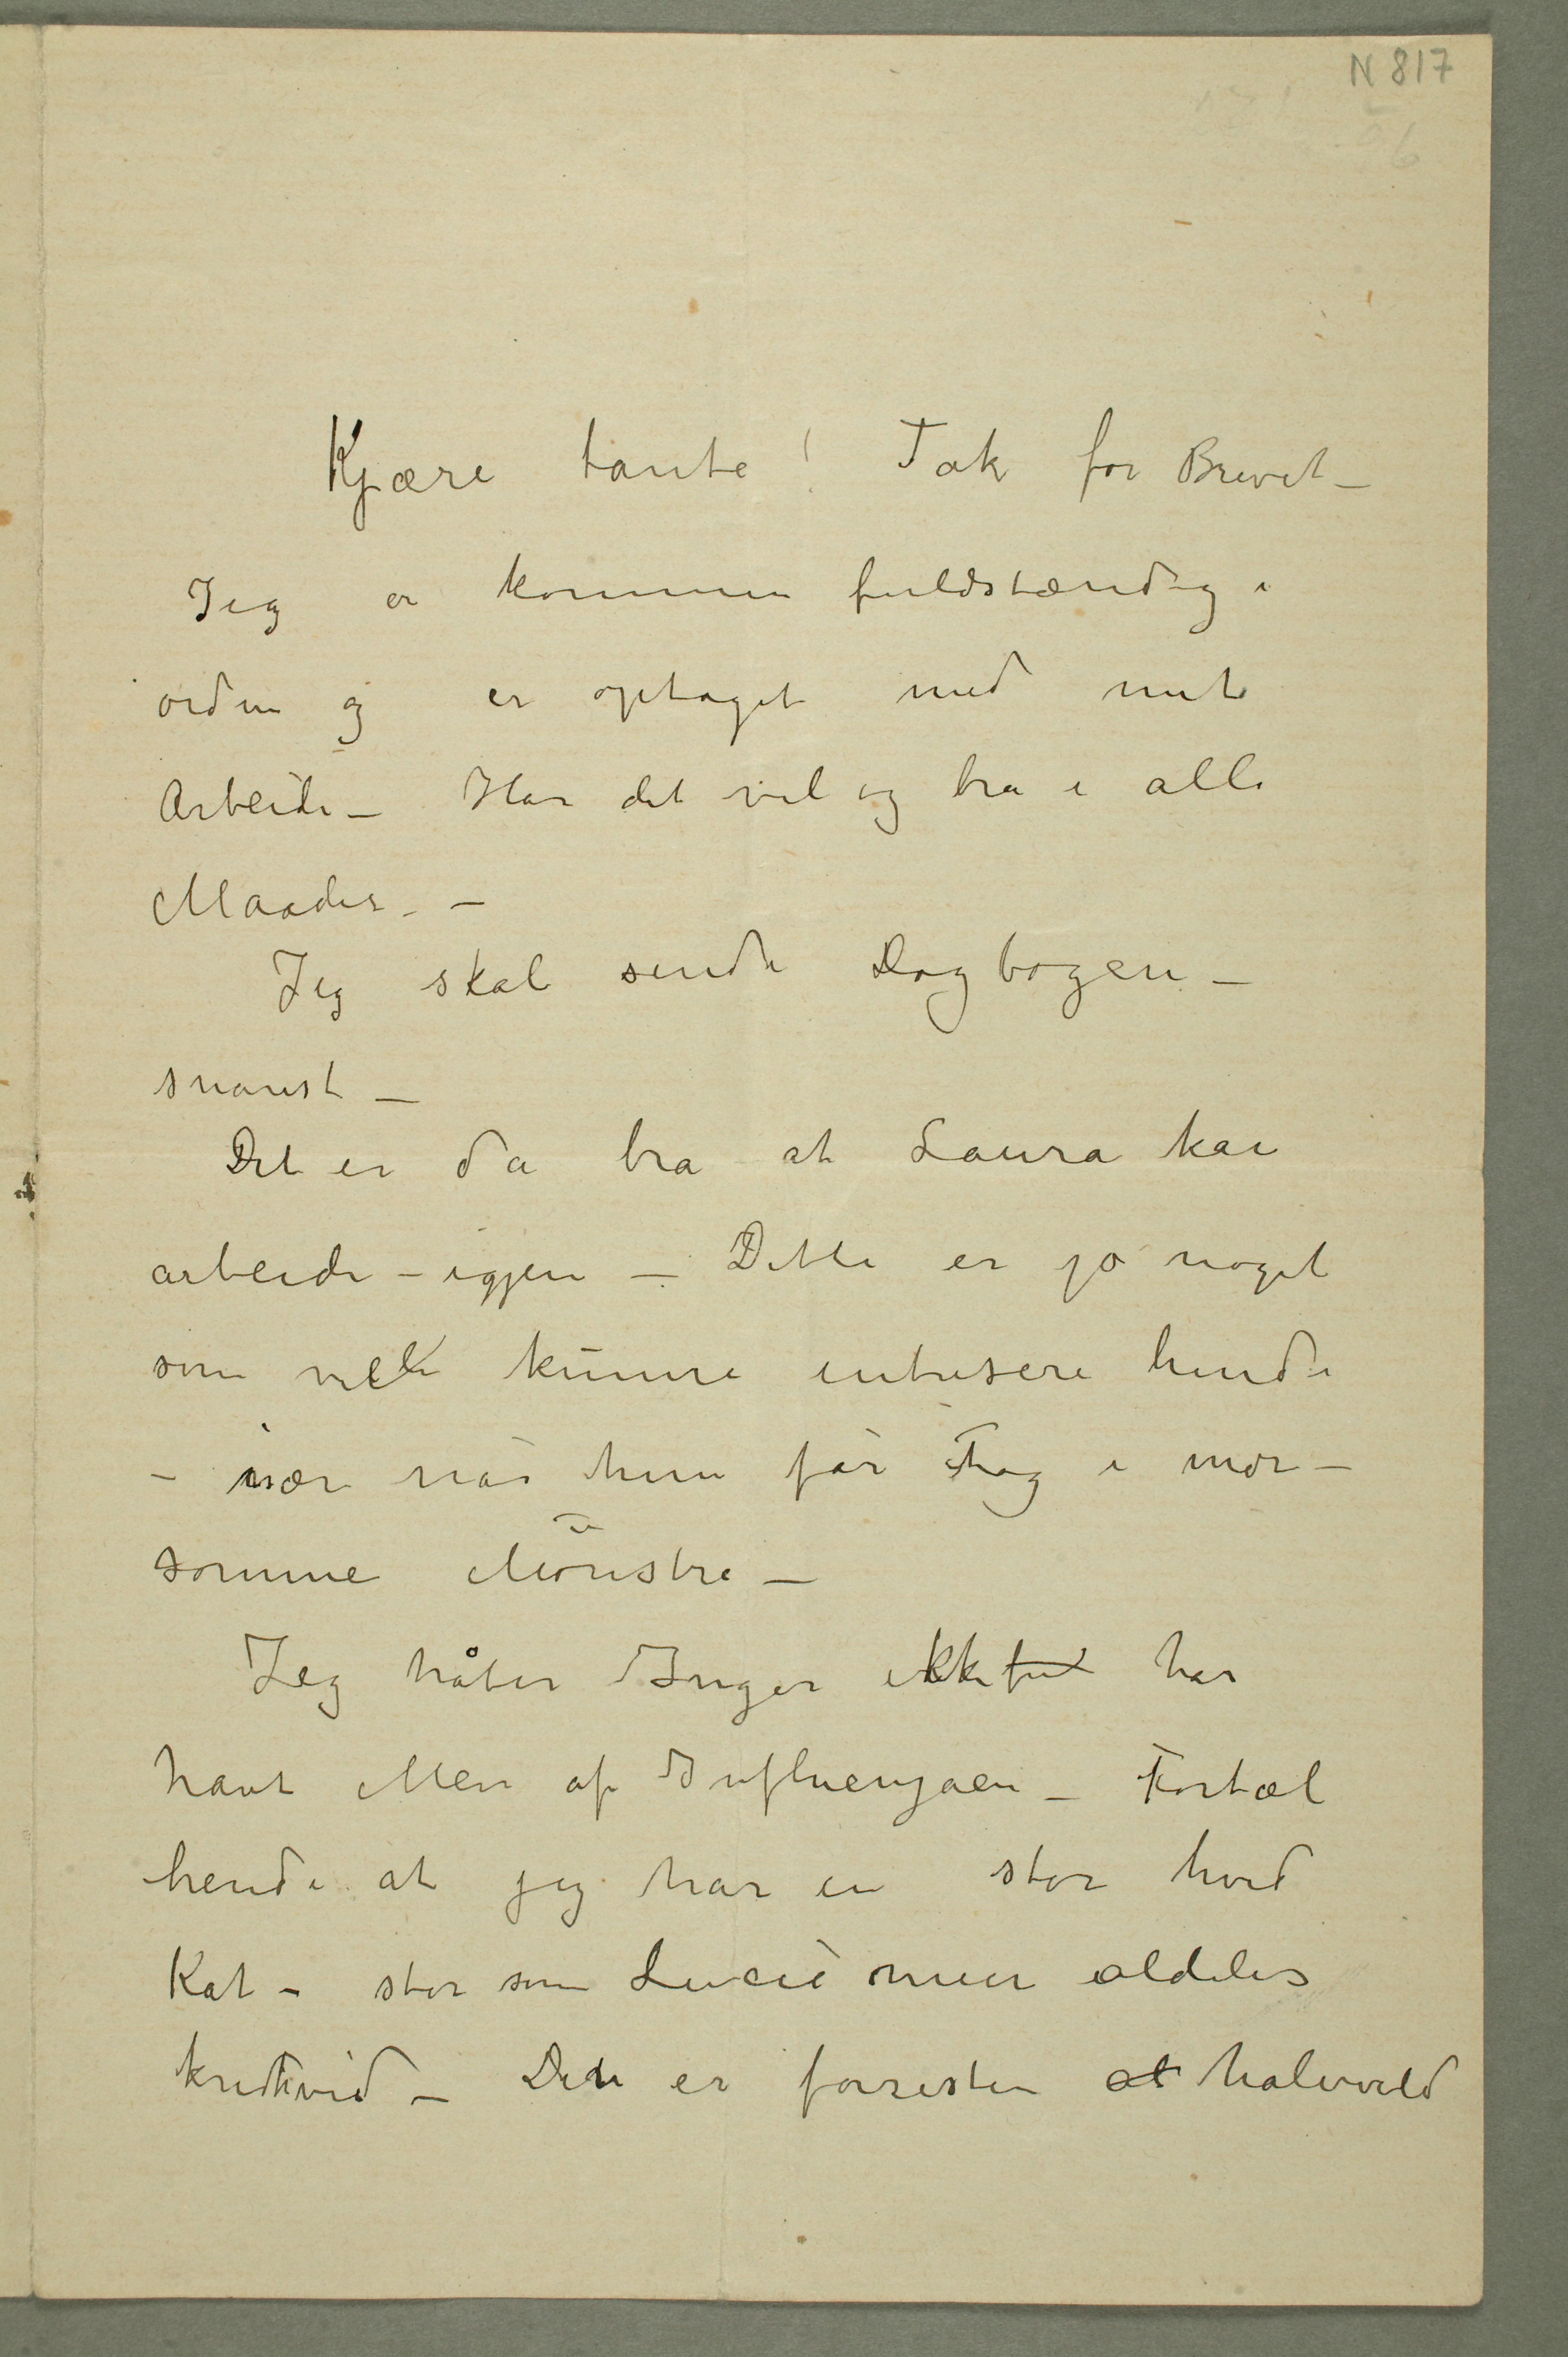 N 817
Kjære tante! Tak for Brevet –
Jeg er kommen fuldstændig i
orden og er optaget med mit
Arbeide – Har det vel og bra i alle
Maader. –
Jeg skal sende Dagbogen –
snarest –
Det er da bra at Laura kan
arbeide – igjen – Dette er jo noget
som vilde kunne intresere hende
– især når hun får Fag i mor-
somme Mønstre –
Jeg håber Inger ikke har
havt Men af Influenzaen – Fortæl
hende at jeg har en stor hvid
Kat – stor som Lucie men aldeles
kridhvid – Den er forresten halvvild